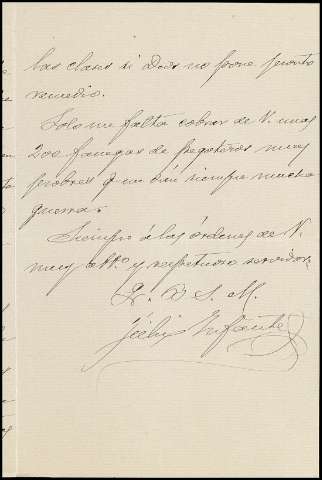 las clases si Dios no pone pronto
remedio.
Solo me falta cobrar de V. unas
200 fanegas de pegoteros muy
pobres q. me dan siempre mucha
guerra.
Siempre á las órdenes de V.
muy att.º y respetuoso servidor
Q. B. S. M.
Félix Infante